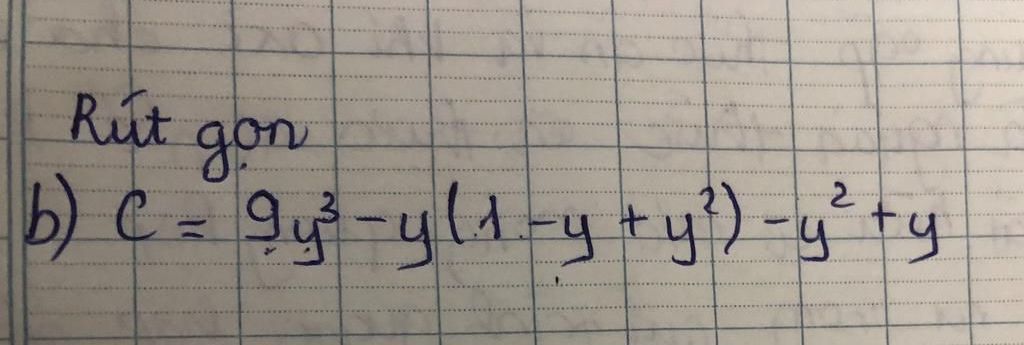 Rút gọn
b) C = 9y³ - y(1 - y + y²) - y² + y